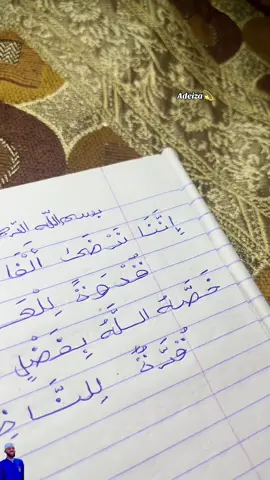 Adeiza
بسم الله الرحم
إِنَّنَا نَرْضَى الْفَا
قُدْوَةً لِلْهَ
خَصَّهُ اللَّهُ بِفَضْلٍ
قُرَّةٌ لِلنَّا